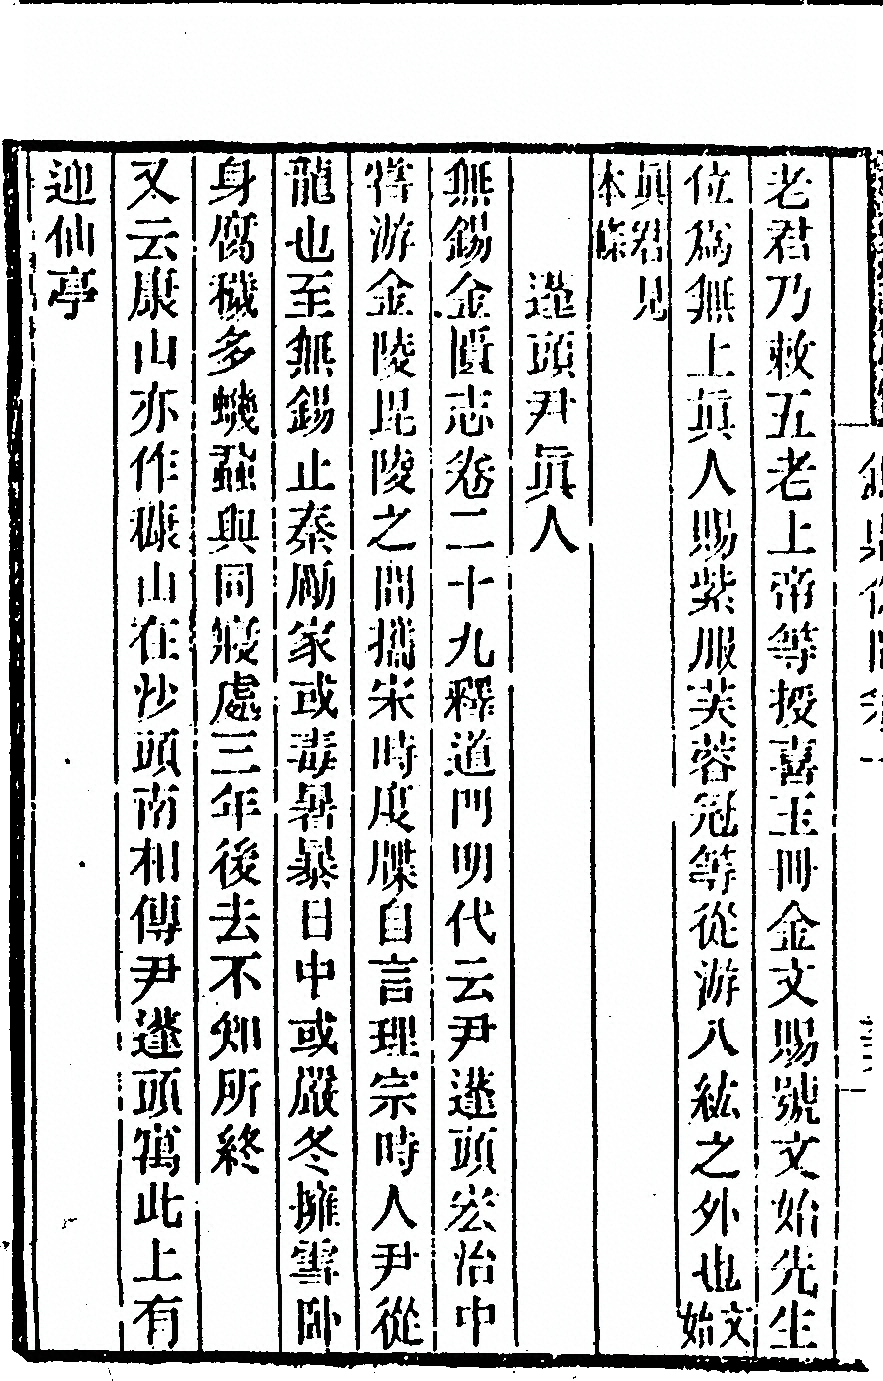 老君乃敕五老上帝等授喜玉冊金文賜號文始先生
位爲無上眞人賜紫服芙蓉冠等從游八紘之外也文始
眞君見本條
蓬頭尹眞人
無錫金匱志卷二十九釋道門明代云尹蓬頭宏治中
嘗游金陵毘陵之間攜宋時度牒自言理宗時人尹從
龍也至無錫止秦勵家或毒暑暴日中或嚴冬擁雪卧
身腐穢多蟣蝨與同寢處三年後去不知所終
又云康山亦作穅山在炒頭南相傳尹蓬頭寓此上有
迎仙亭